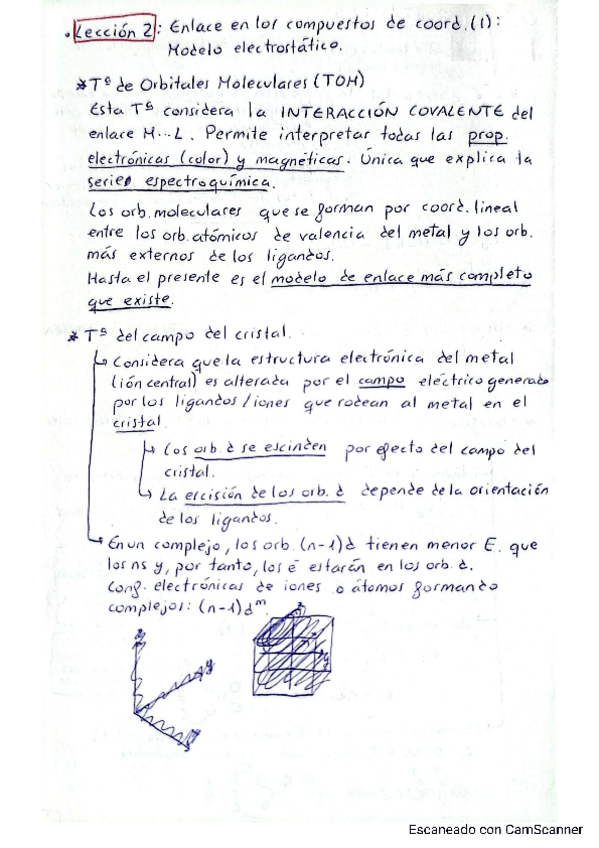 • Lección 2: Enlace en los compuestos de coord. (1):
Modelo electrostático.
* Tª de Orbitales Moleculares (TOM)
Esta Tª considera la INTERACCIÓN COVALENTE del
enlace M...L. Permite interpretar todas las prop.
electrónicas (color) y magnéticas. Única que explica la
series espectroquímica.
Los orb. moleculares que se forman por coord. lineal
entre los orb. atómicos de valencia del metal y los orb.
más externos de los ligandos.
Hasta el presente es el modelo de enlace más completo
que existe.
* Tª del campo del cristal.
Considera que la estructura electrónica del metal
(ión central) es alterada por el campo eléctrico generado
por los ligandos/iones que rodean al metal en el
cristal.
Los orb. d se escinden por efecto del campo del
cristal.
La escisión de los orb. d depende de la orientación
de los ligandos.
En un complejo, los orb. (n-1)d tienen menor E. que
los ns y, por tanto, los ē estarán en los orb. d.
Conf. electrónicas de iones o átomos formando
complejos: (n-1)dᵐ
Escaneado con CamScanner